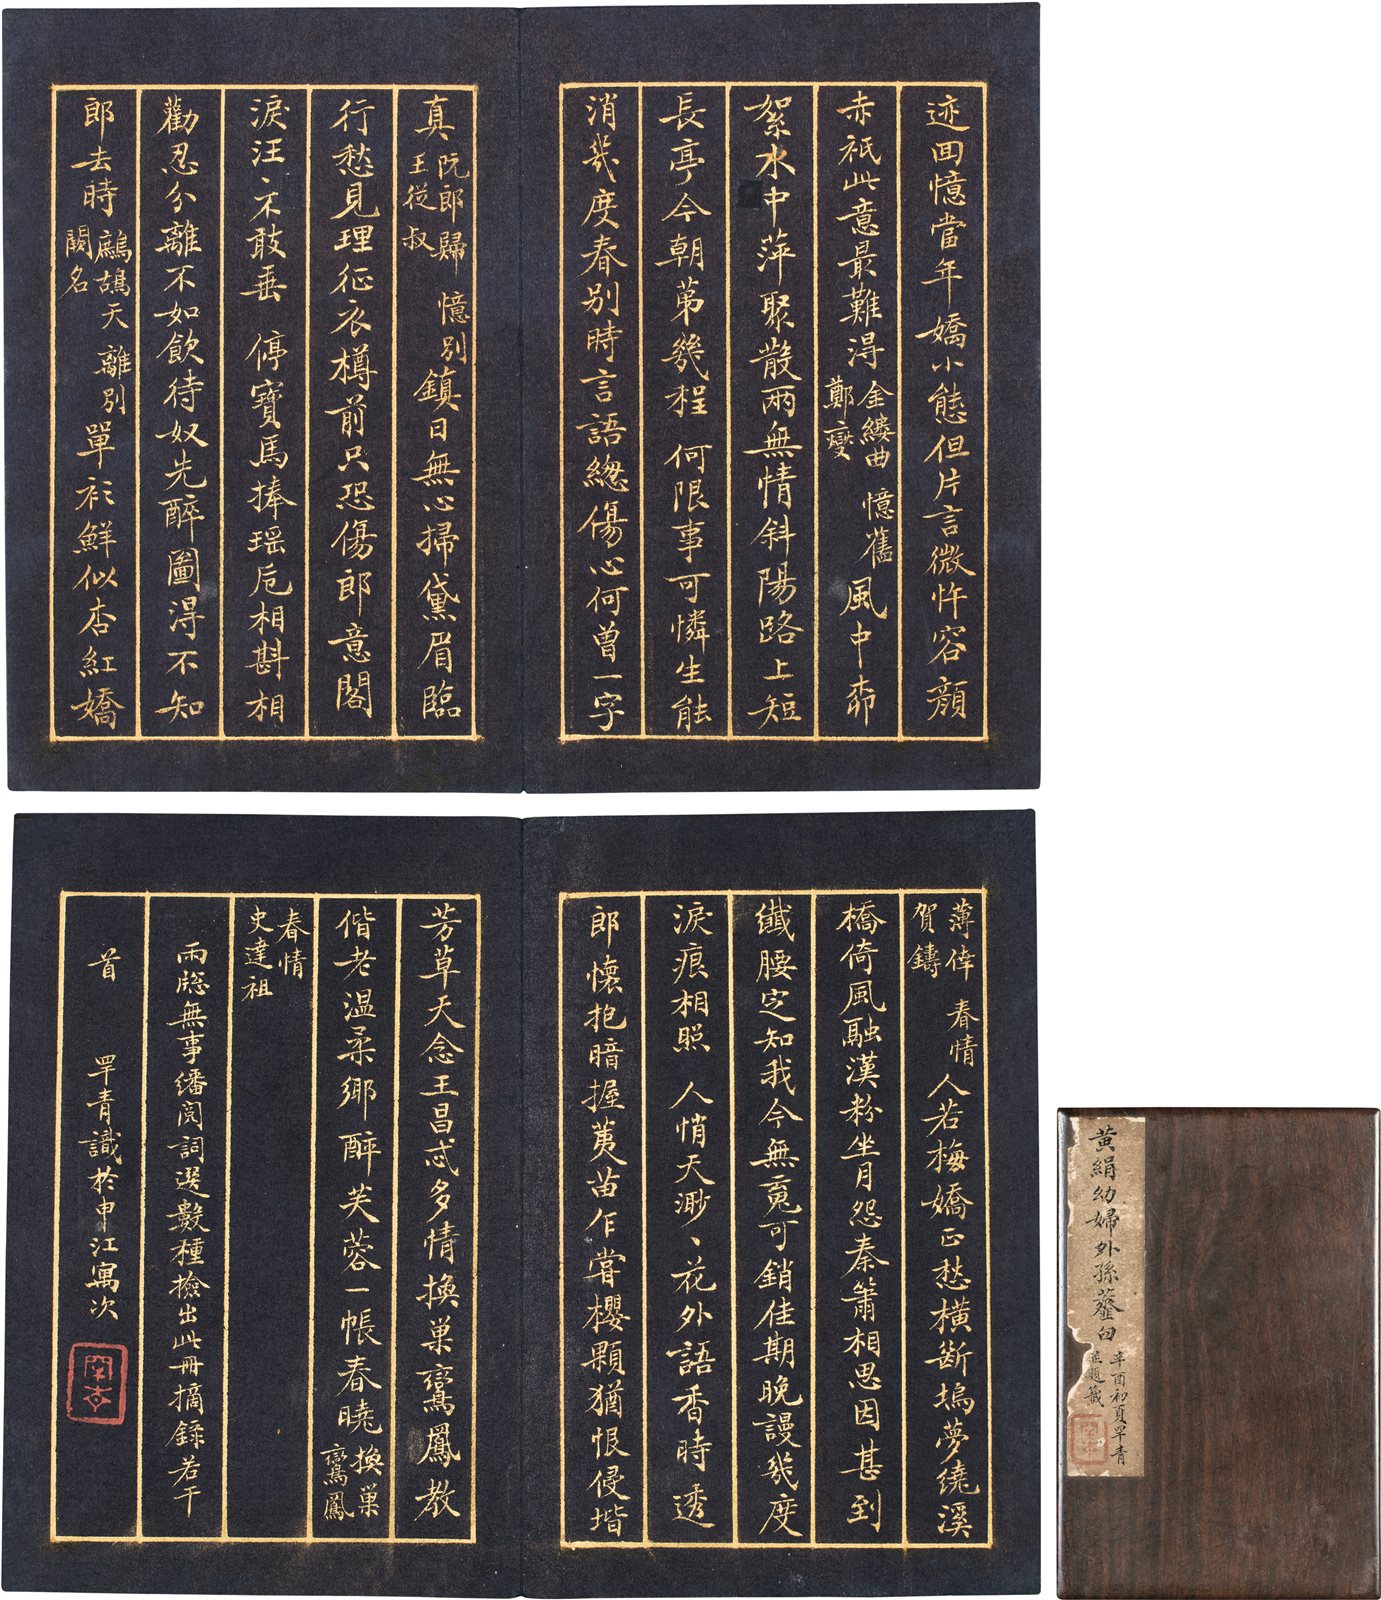 迹回憶當年嬌小態但片言微忤容顏
赤祇此意最難淂金縷曲 憶舊
鄭燮
風中柳
絮水中萍聚散兩無情斜陽路上短
長亭今朝第幾程 何限事可憐生能
消幾度春別時言語緫傷心何曾一字
真阮郎歸 憶別
王從叔
鎮日無心掃黛眉臨
行愁見理征衣樽前只恐傷郎意閣
淚汪〻不敢垂 停寶馬捧瑶卮相斟相
勸忍分離不如飲待奴先醉圖淂不知
郎去時鷓鴣天 離別
闕名
單衫鮮似杏紅嬌
薄倖 春情
賀鑄
人若梅嬌正愁橫斷塢夢繞溪
橋倚風融漢粉坐月怨秦簫相思因甚到
纖腰定知我今無䰟可銷佳期晚謾幾度
淚痕相照 人悄天渺〻花外語香時透
郎懷抱暗握荑苗乍嘗櫻顆猶恨侵堦
芳草天念王昌忒多情換巢鸞鳳教
偕老温柔鄉醉芙蓉一帳春曉換巢
鸞鳳
春情
史達祖
雨牕無事繙閲詞選數種撿出此冊摘錄若干
首 罕青識於申江寓次
黃絹幼婦外孫虀臼
辛酉初夏罕青
並題籤